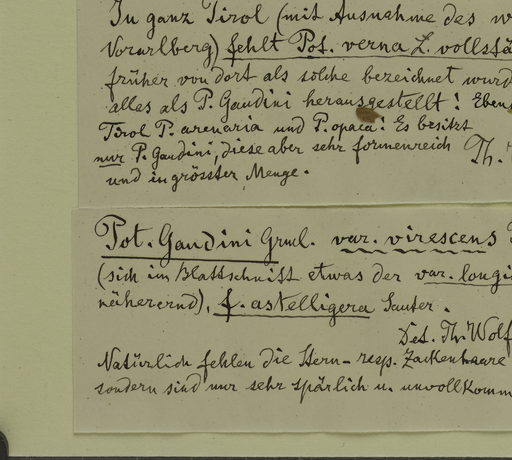 In ganz Tirol (mit Ausnahme des w
Vorarlberg) fehlt Pot. verna L. vollstä
früher von dort als solche bezeichnet wurd
alles als P. Gaudini herausgestellt! Eben
Tirol P. arenaria und P. opaca. Es besitzt
nur P. Gaudini, diese aber sehr formenreich Th.
und in grösster Menge.
Pot. Gaudini Greml. var. virescens
(sich im Blattschnitt etwas der var. longi
näherernd), f. astelligera Sauter.
Det. Th. Wolf
Natürlich fehlen die Stern- resp. Zackenhaare
sondern sind nur sehr spärlich u. unvollkomm